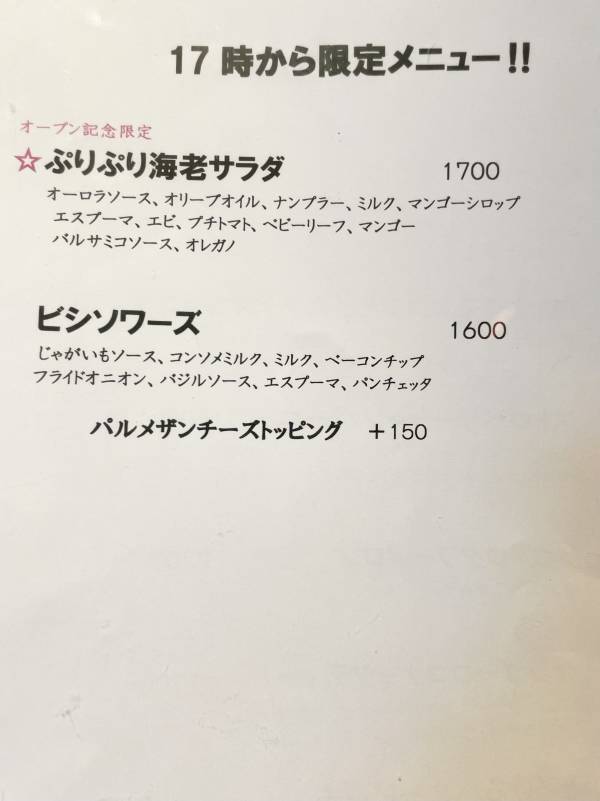 17 時から限定メニュー!!
オープン記念限定
☆ぷりぷり海老サラダ 1700
オーロラソース、オリーブオイル、ナンプラー、ミルク、マンゴーシロップ
エスプーマ、エビ、プチトマト、ベビーリーフ、マンゴー
バルサミコソース、オレガノ
ビシソワーズ 1600
じゃがいもソース、コンソメミルク、ミルク、ベーコンチップ
フライドオニオン、バジルソース、エスプーマ、パンチェッタ
パルメザンチーズトッピング +150